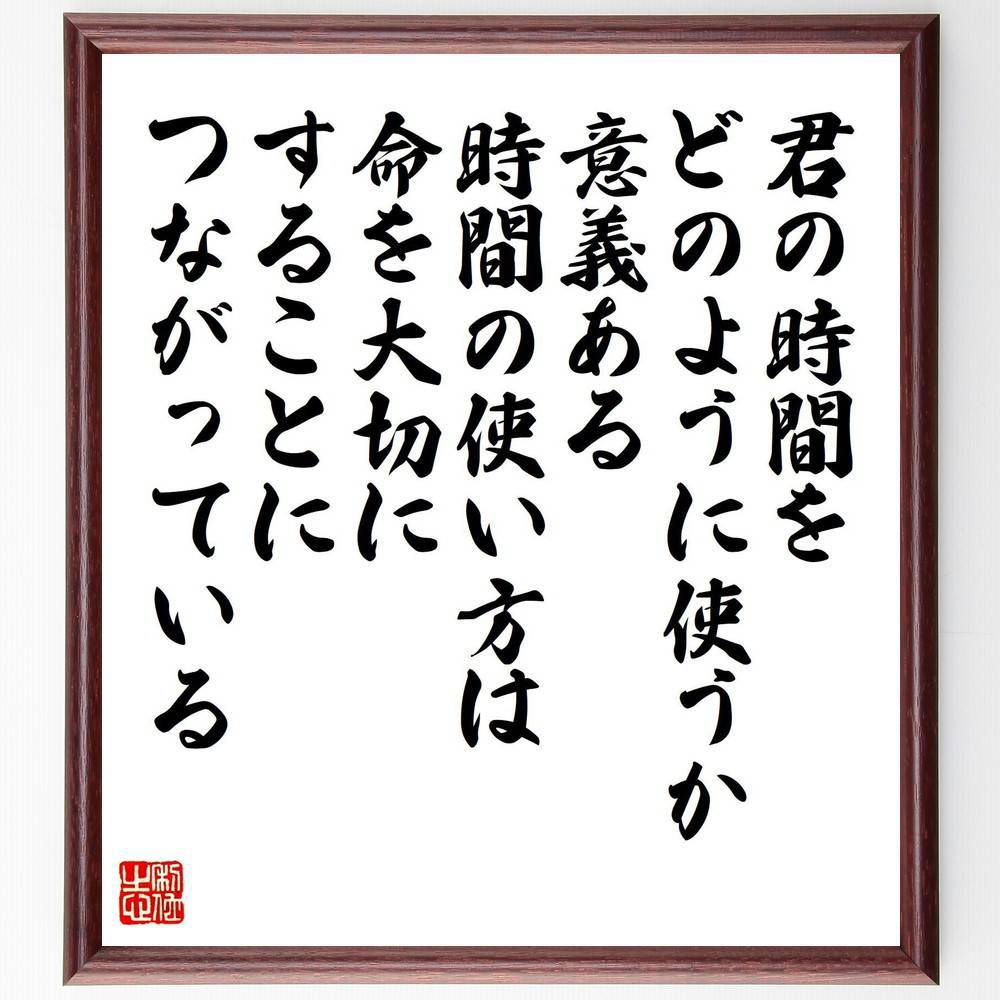 君の時間を
どのように使うか
意義ある
時間の使い方は
命を大切に
することに
つながっている